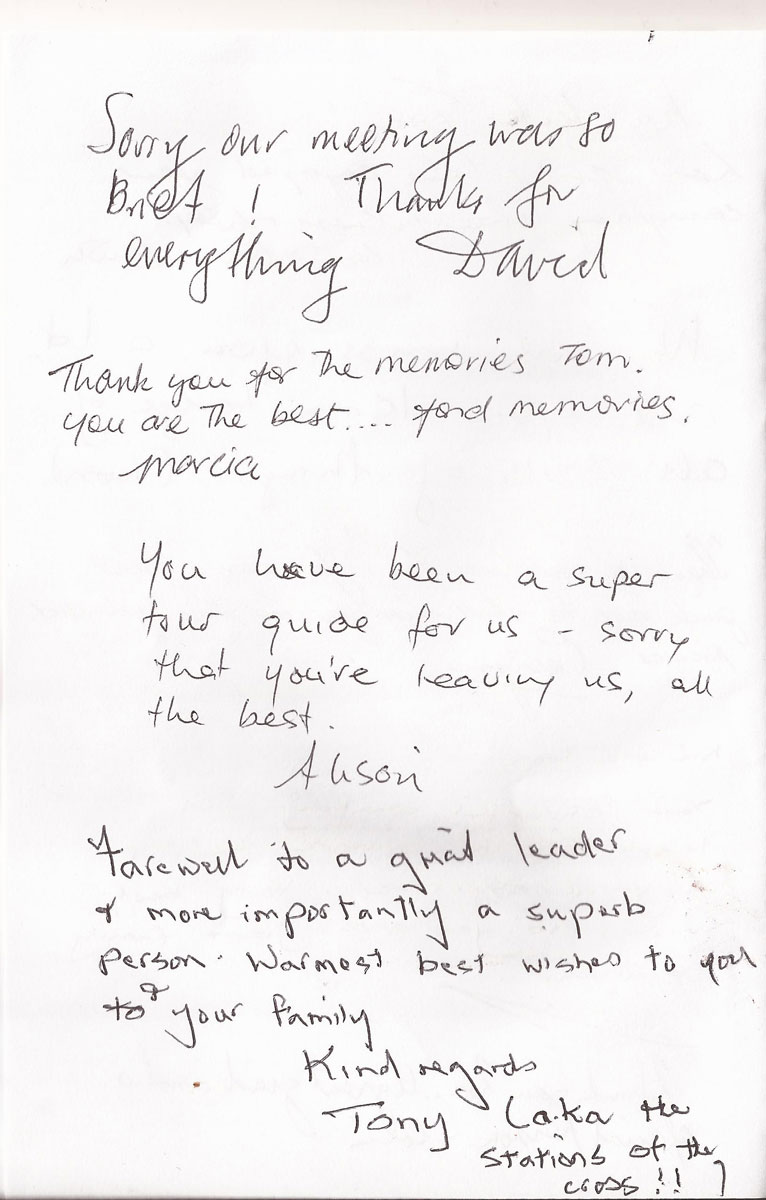 Sorry our meeting was so
Brief ! Thanks for
everything David
Thank you for The memories Tom.
you are The best.... fond memories.
Marcia
You have been a super
tour guide for us - sorry
that you're leaving us, all
the best.
Alison
Farewell to a great leader
& more importantly a superb
person. Warmest best wishes to you
& your family
Kind regards
Tony (a.k.a the
stations of the
cross !! )